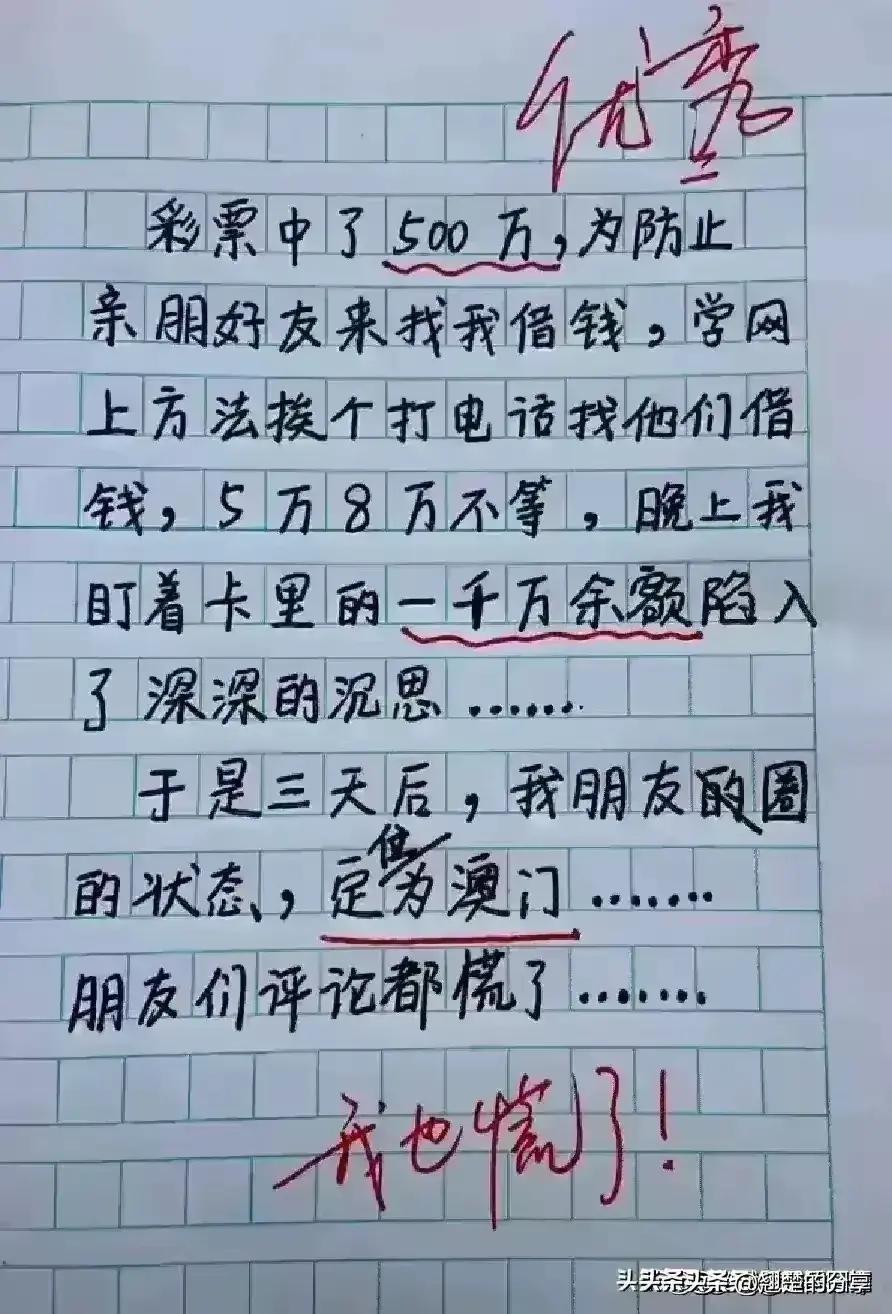 优秀
彩票中了500万,为防止
亲朋好友来找我借钱,学网
上方法挨个打电话找他们借
钱,5万8万不等,晚上我
盯着卡里的一千万余额陷入
了深深的沉思......
于是三天后,我朋友的圈
的状态,定位为澳门.......
朋友们评论都慌了.......
我也慌了!
@翘楚的分享